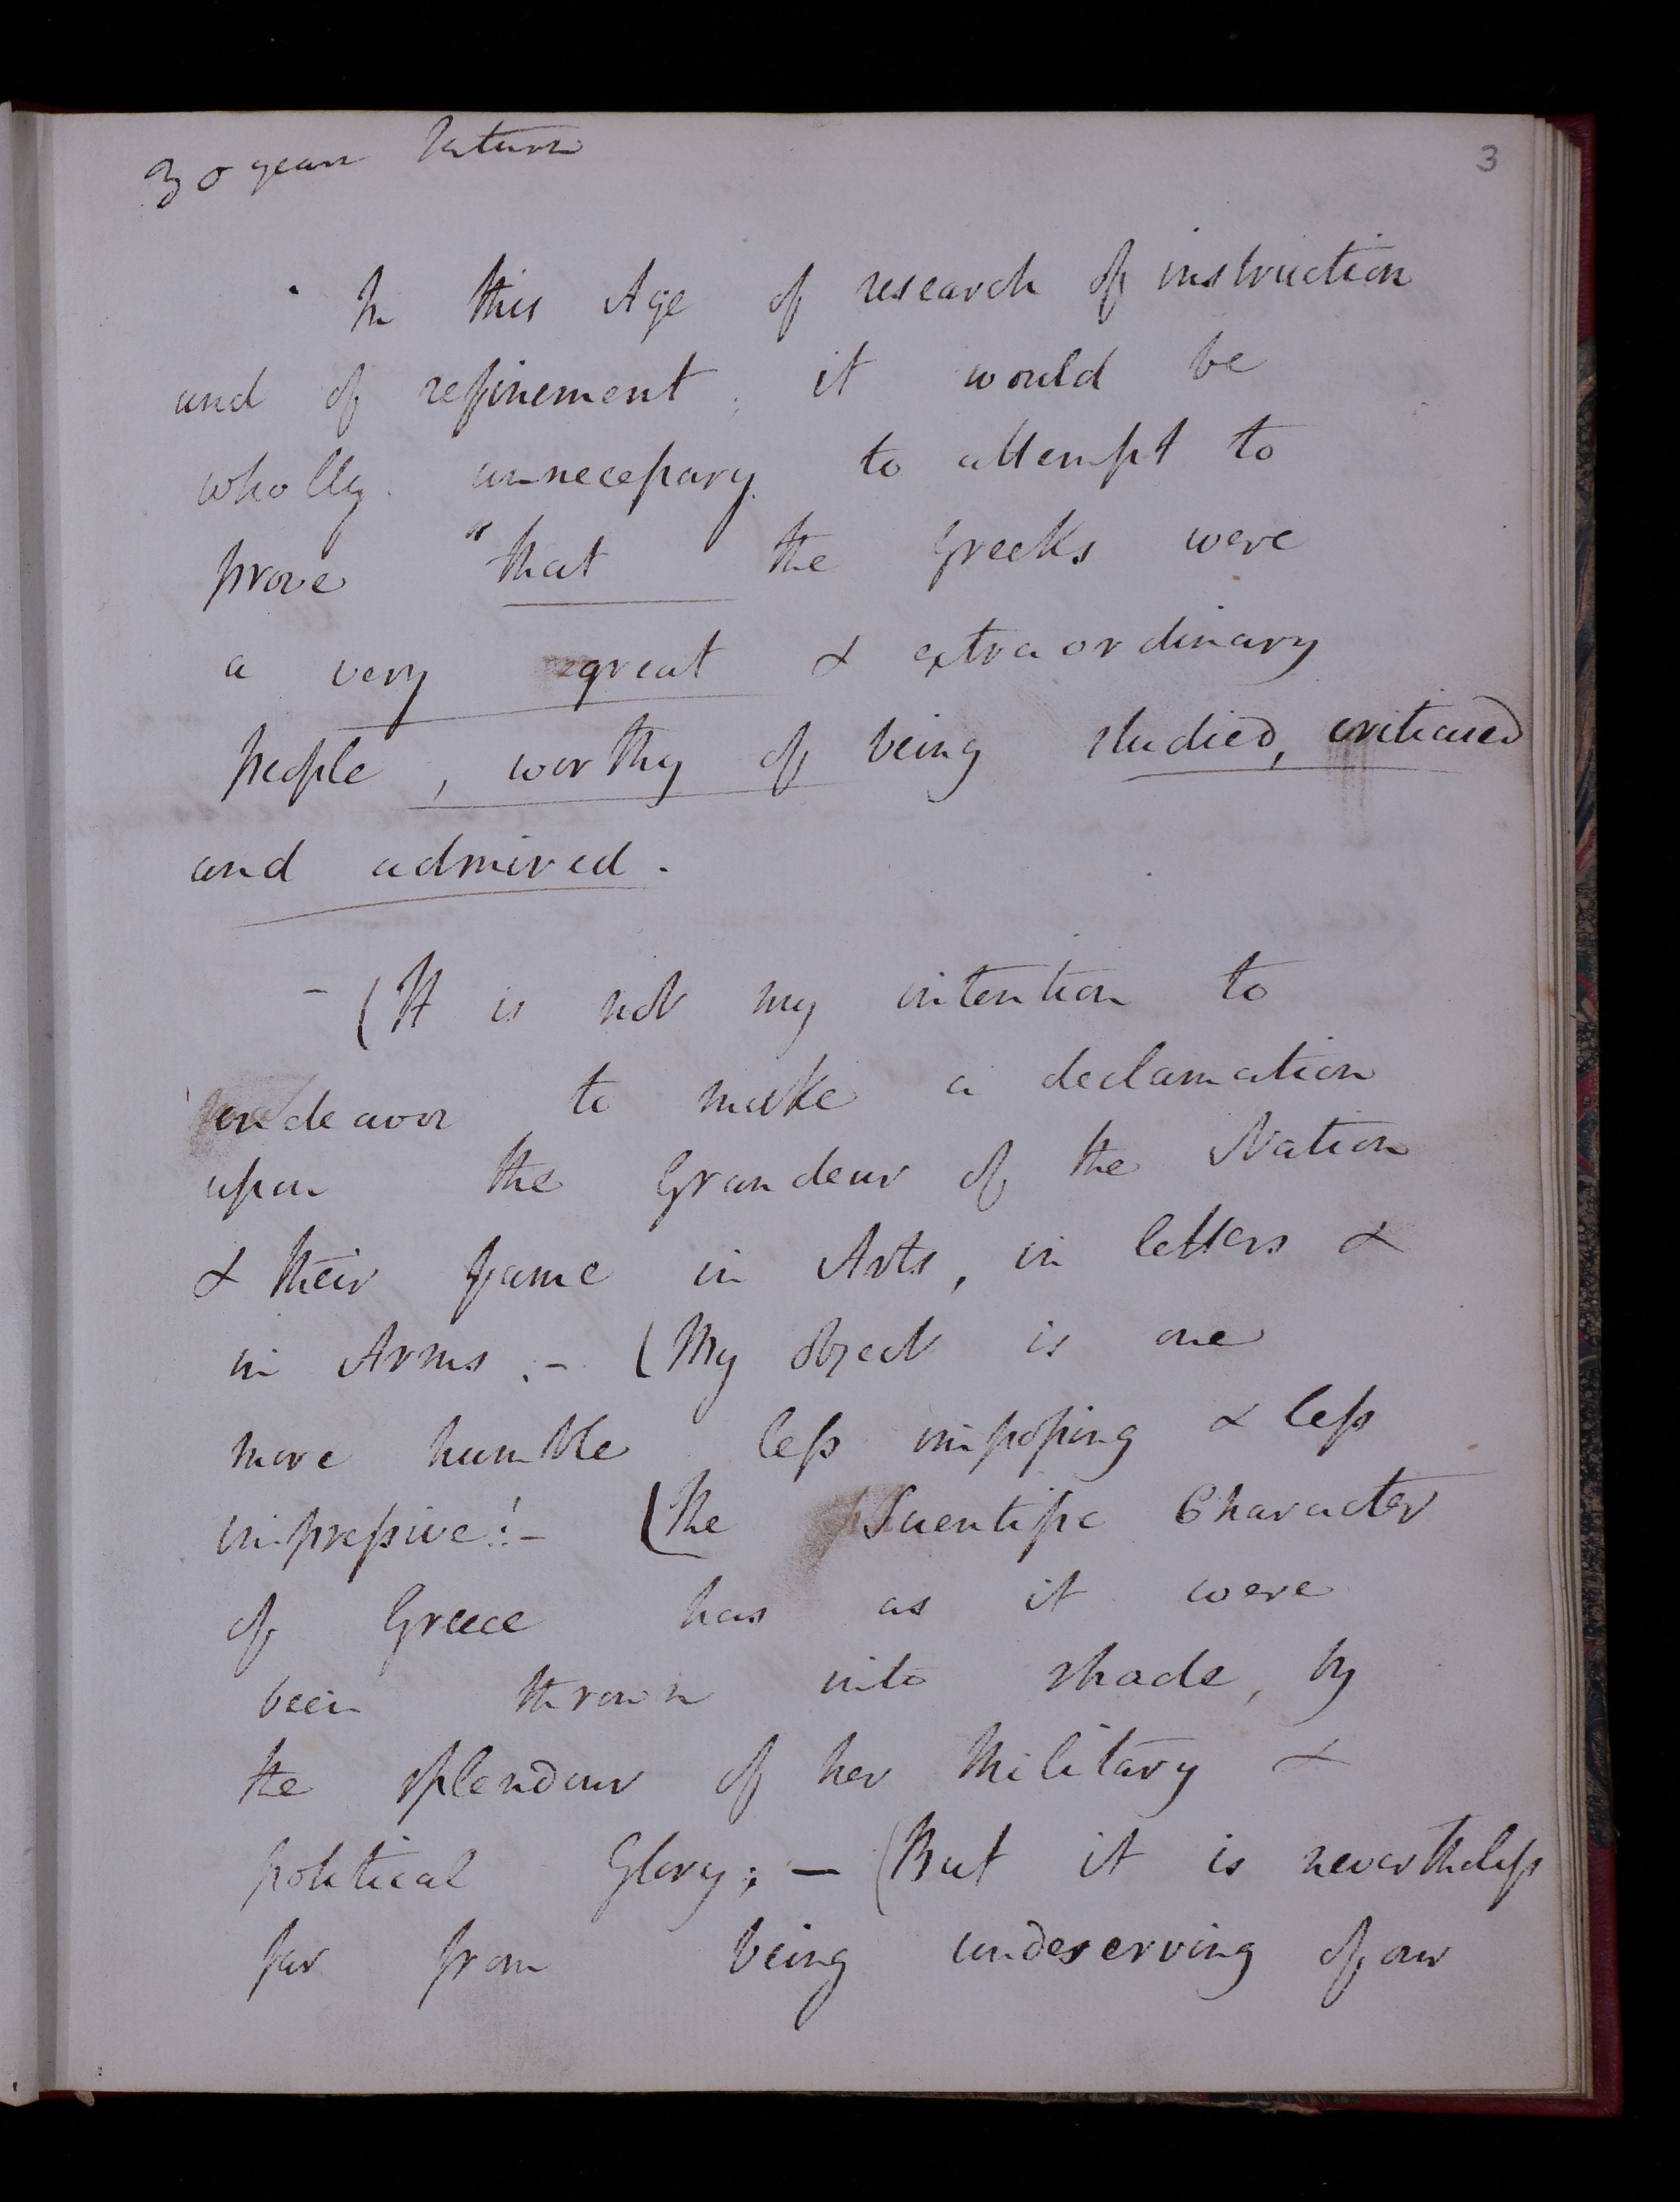 30 years
3
In this Age of research of instruction
and of refinement, it would be
wholly unnecessary to attempt to
prove "that the Greeks were
a very great & extraordinary
people, worthy of being studied, criticised
and admired.
- (It is not my intention to
endeavor to make a declamation
upon the Grandeur of the Nation
& their fame in Arts, in letters &
in Arms.- (My object is one
more humble less imposing & less
impressive!- (The Scientific Character
of Greece has as it were
been thrown into shade, by
the splendour of her Military &
political Glory; - (But it is nevertheless
far from being undeserving of our